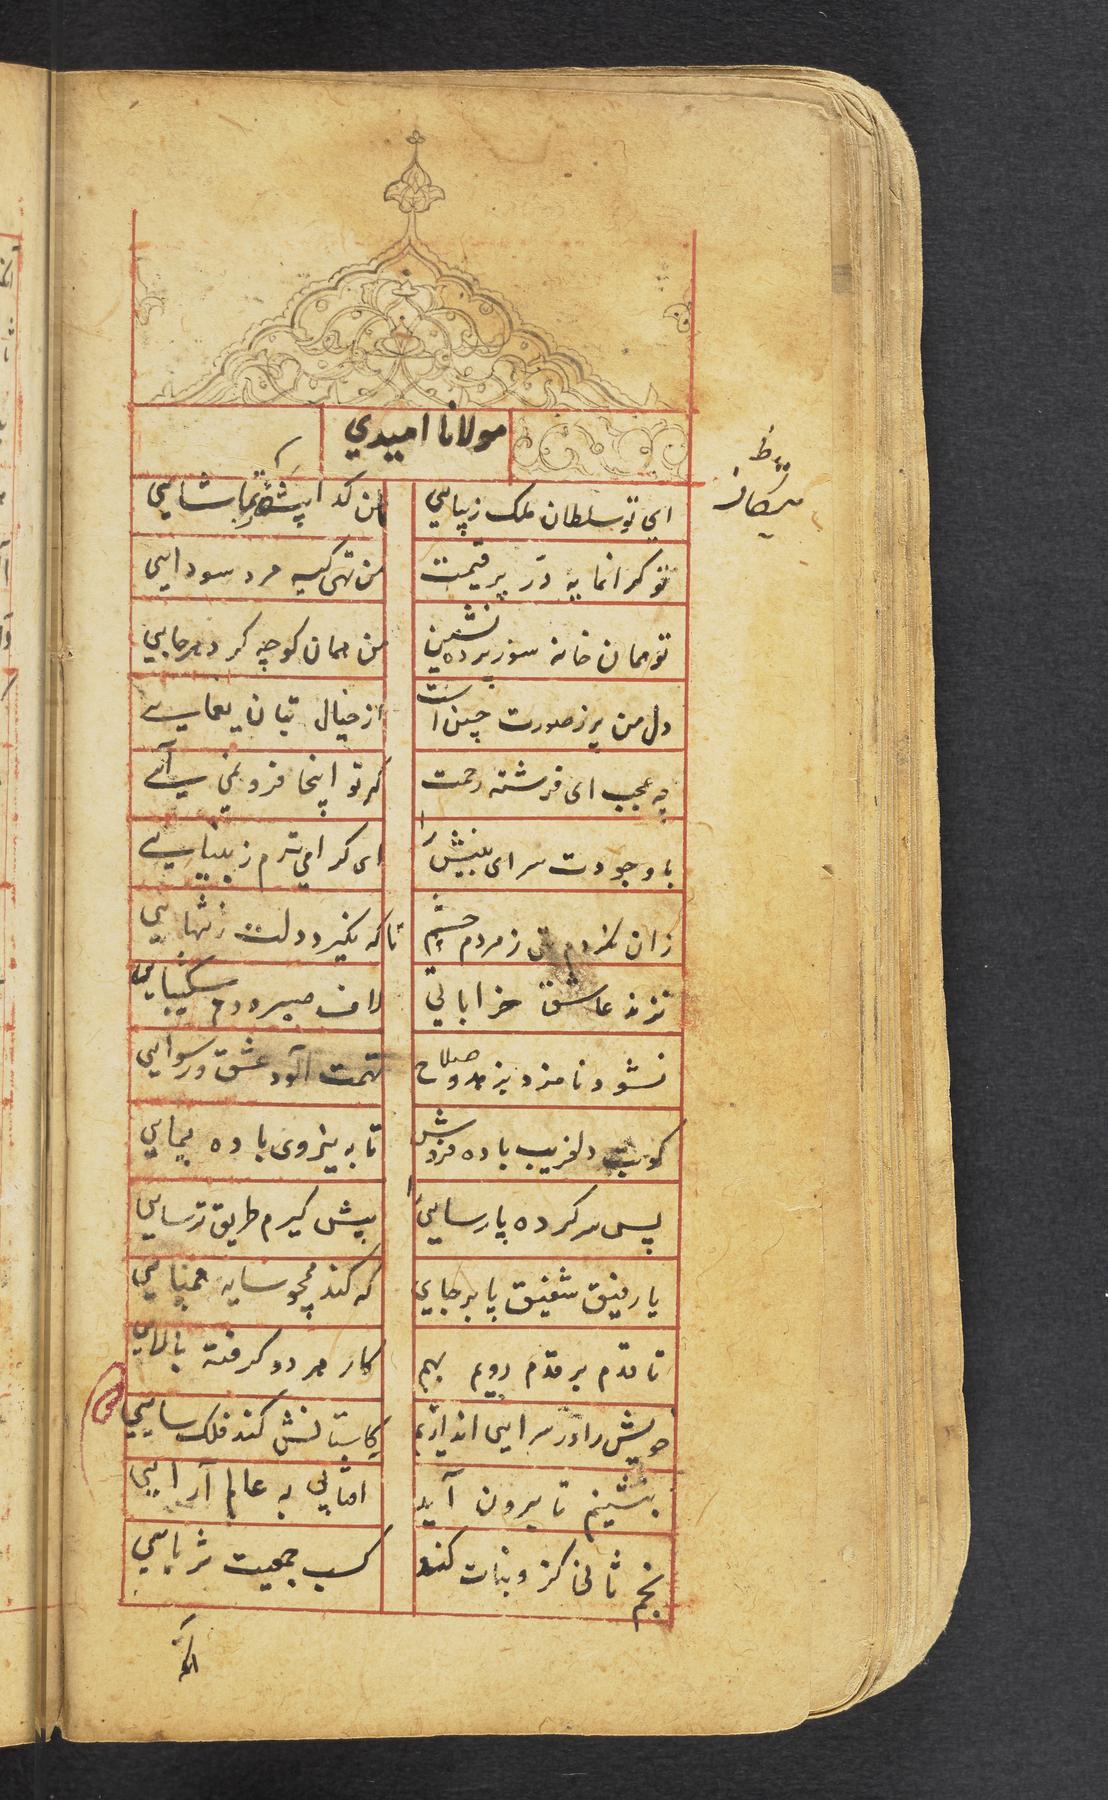 مولانا امیدی
ای تو سلطان ملک زیبایی
من گدا پیشهٔ تماشایی
تو کرانمایه در پر قیمت
من تهی کیسه مرد سودایی
تو همان خانه سوز پرده نشین
من همان کوچه کرد هرجایی
دل من پر ز صورت چین است
از خیال بتان یغمایی
چه عجب ای فرشته رحمت
کر تو اینجا فرو نمی آیی
با وجودت سرای بینش را
ای کرامی ترم ز بینایی
زان نکردم تهی ز مردم چشم
تا که نگیرد دلت ز تنهایی
نزند عاشق خراباتی
لاف صبر و دم شکیبایی
نشود نامزد بزهد و صلاح
تهمت آلود عشق و رسوایی
کو بت دلفریب باده فروش
تا به نیروی باده پیمایی
پس سر کرده پارسایی را
پیش کیرم طریق ترسایی
یا رفیق شفیق پابرجای
که کند همچو سایه همپایی
تا قدم بر قدم رویم بهم
کار هر دو کرفته بالایی
خویش را در سرایی اندازیم
کاستانش کند فلک سایی
بنشینم تا برون آید
افتابی به عالم آرایی
نجم ثانی کزو بنات کند
کسب جمعیت ثریایی